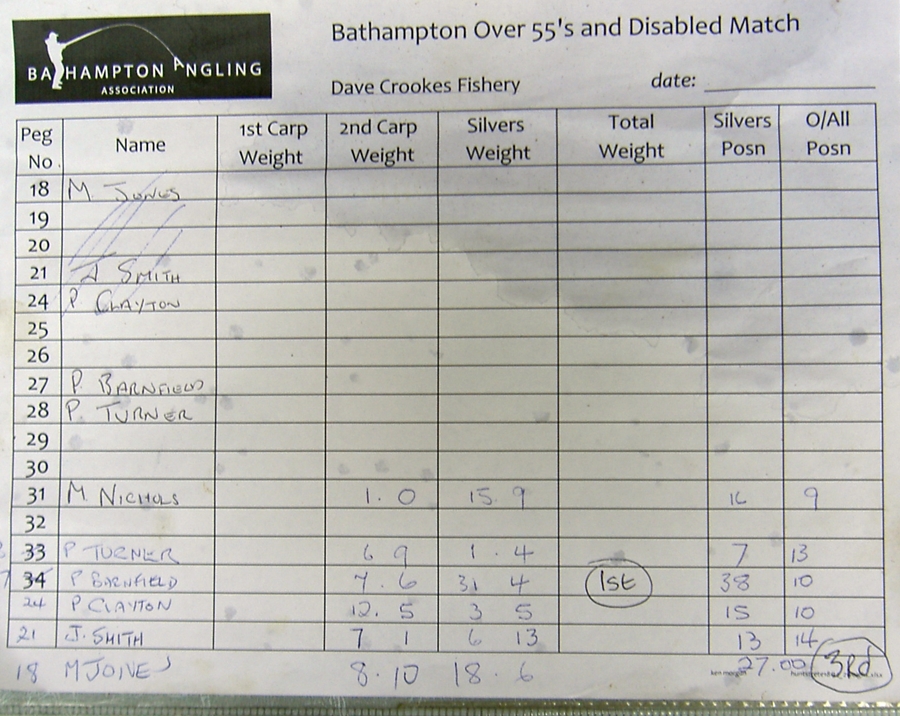 BATHAMPTON ANGLING
ASSOCIATION
Bathampton Over 55's and Disabled Match
Dave Crookes Fishery date:
Peg No. Name 1st Carp Weight 2nd Carp Weight Silvers Weight Total Weight Silvers Posn O/All Posn
18 M. JONES
19
20
21 J SMITH
24 P CLAYTON
25
26
27 P. BARNFIELD
28 P. TURNER
29
30
31 M NICHOLS 1. 0 15. 9 16 9
32
33 P TURNER 6 9 1. 4 7 13
34 P BARNFIELD 7. 6 31 4 1st 38 10
24 P. CLAYTON 12. 5 3 5 15 10
21 J. SMITH 7 1 6 13 13 14
18 M JONES 8. 10 18. 6 27.00 3rd